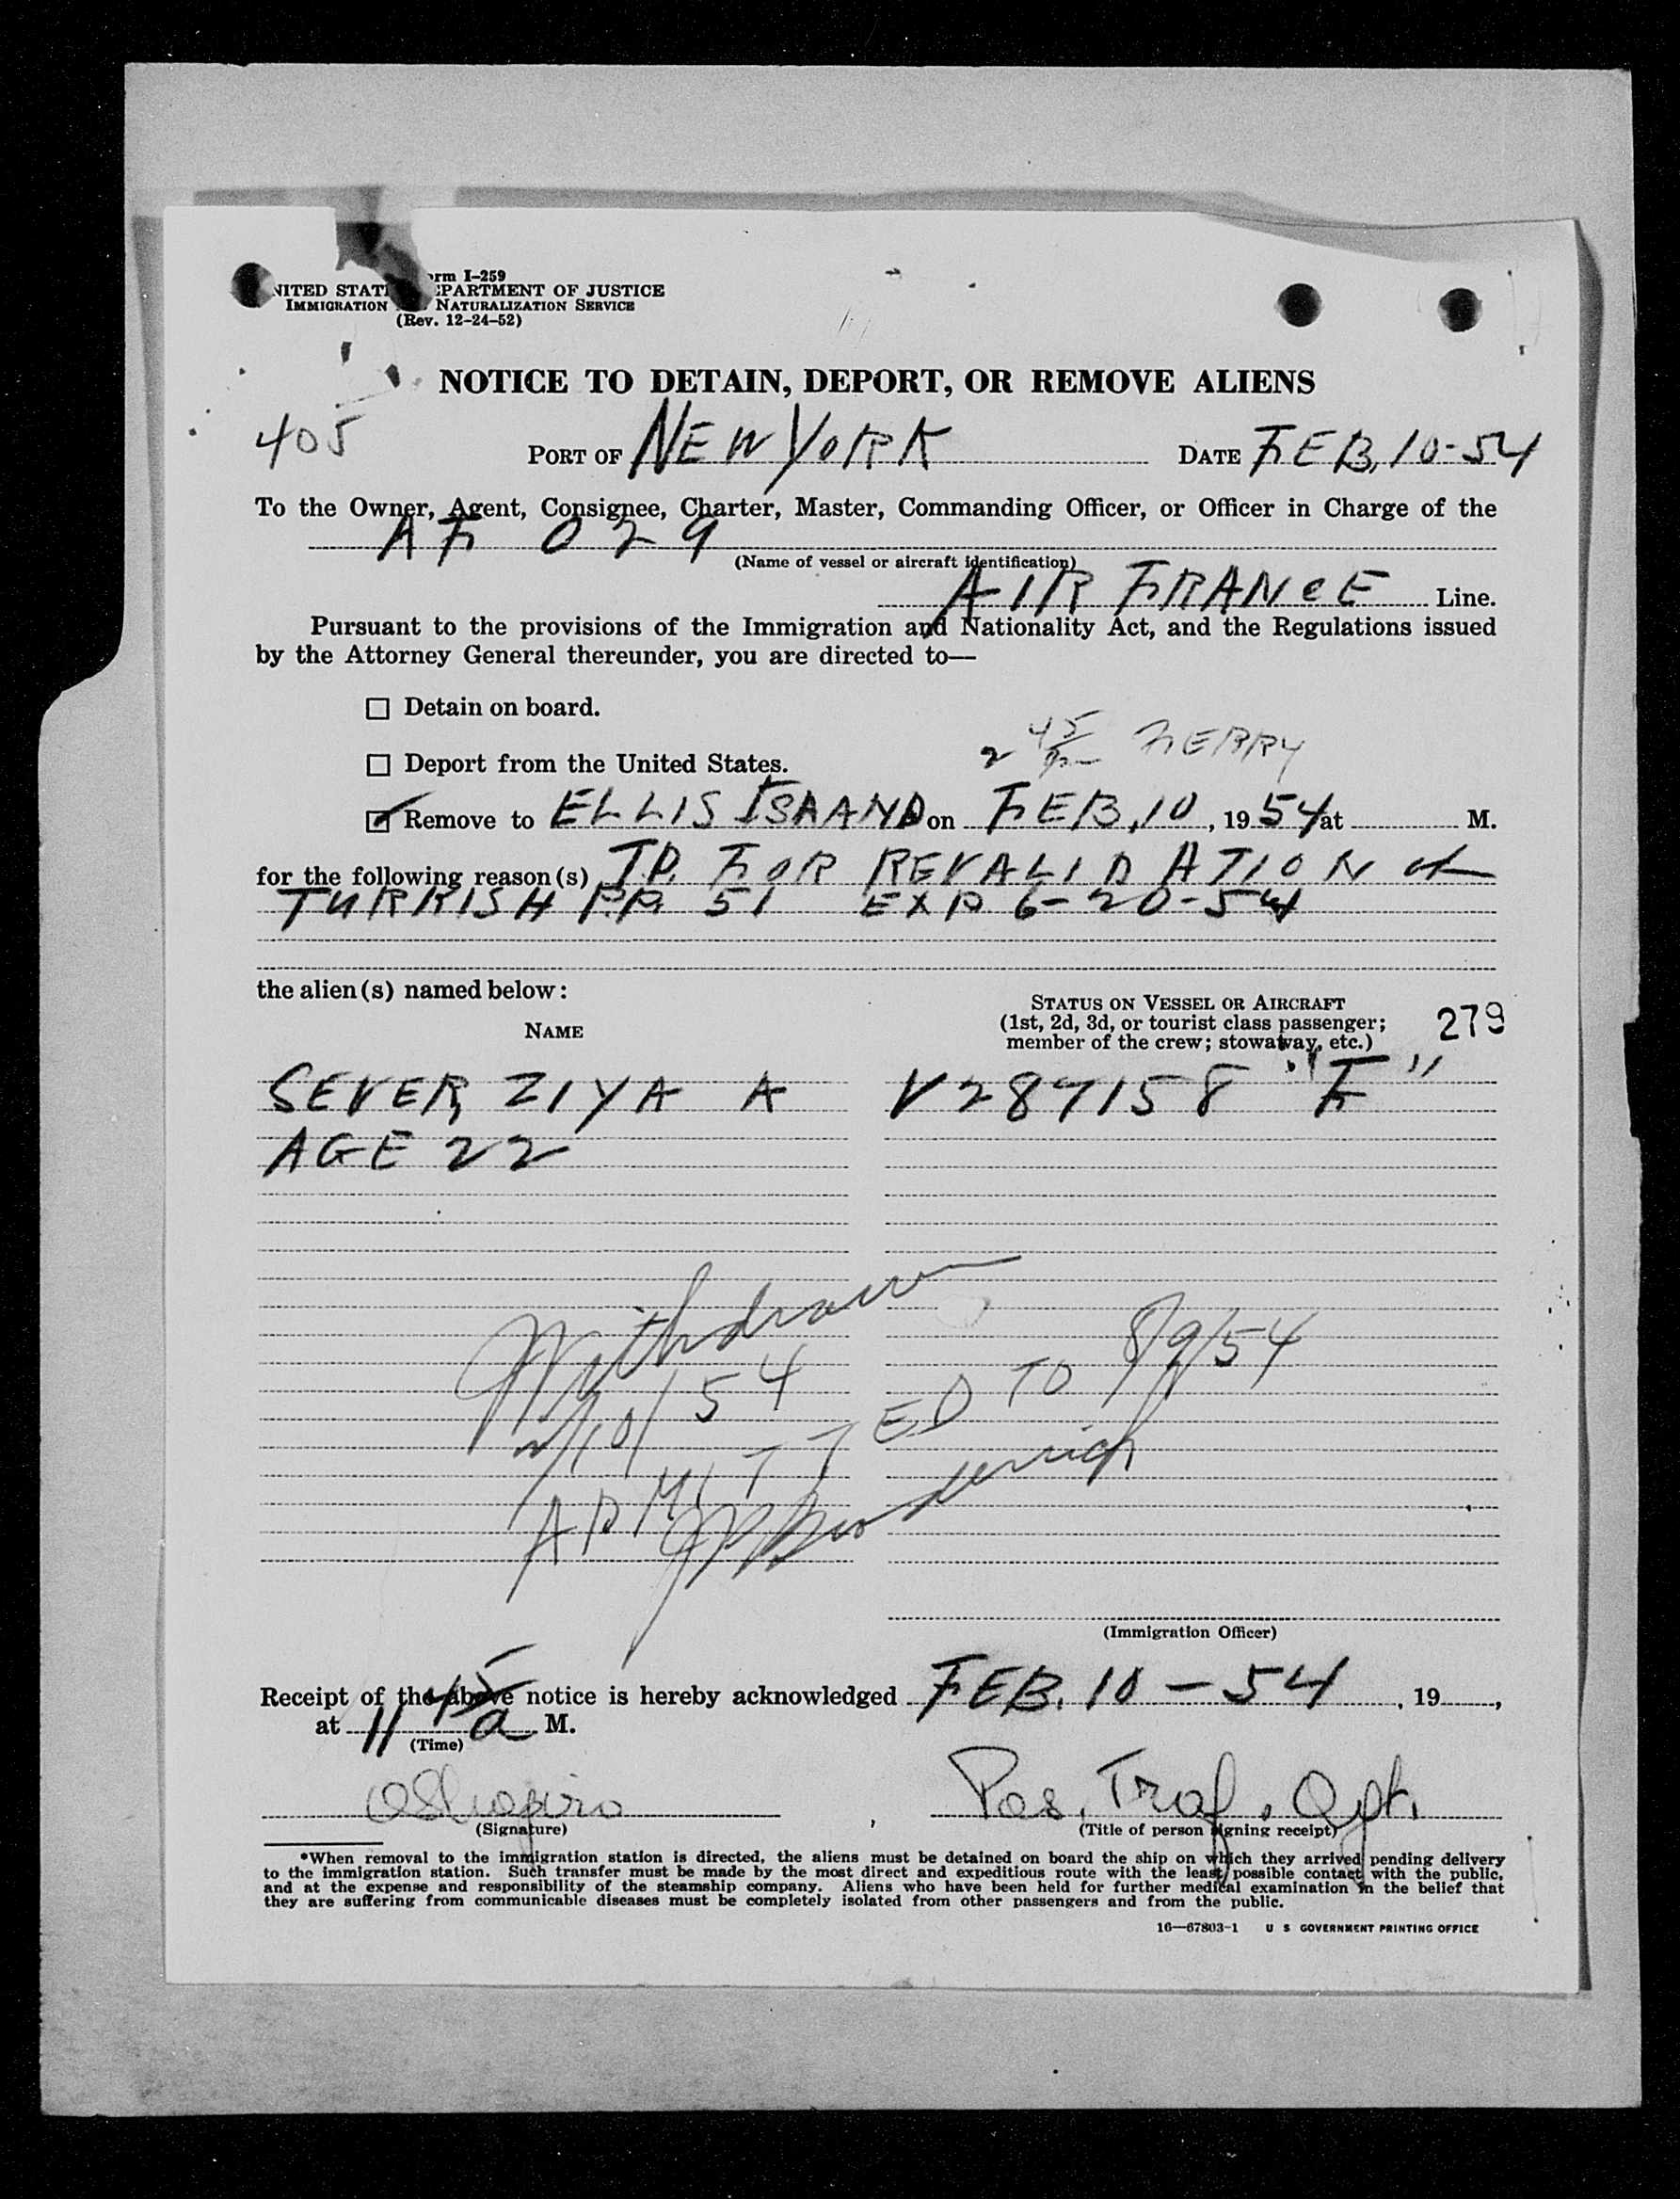 rm I-259
NITED STAT EPARTMENT OF JUSTICE
IMMIGRATION NATURALIZATION SERVICE
(Rev. 12-24-52)
NOTICE TO DETAIN, DEPORT, OR REMOVE ALIENS
405
PORT OF NEW YORK DATE FEB, 10-54
To the Owner, Agent, Consignee, Charter, Master, Commanding Officer, or Officer in Charge of the
AF 029
(Name of vessel or aircraft identification)
AIR FRANCE Line.
Pursuant to the provisions of the Immigration and Nationality Act, and the Regulations issued
by the Attorney General thereunder, you are directed to—
☐ Detain on board.
2 45 FERRY
☐ Deport from the United States.
☑ Remove to ELLIS ISAAND on FEB, 10, 1954 at M.
for the following reason(s) T.D. FOR REVALIDATION of
TURKISH P.P. 51 EXP 6-20-54
the alien(s) named below:
NAME
STATUS ON VESSEL OR AIRCRAFT
(1st, 2d, 3d, or tourist class passenger;
member of the crew; stowaway, etc.)
279
SEVER, ZIYA A V287158 "F"
AGE 22
Withdrawn
2/10/54
ADMITTED TO 8/9/54
(Immigration Officer)
Receipt of the above notice is hereby acknowledged FEB. 10 - 54, 19 ,
at 11 45 a M.
(Time)
OShapiro Pas. Traf. Agt.
(Signature) (Title of person signing receipt)
*When removal to the immigration station is directed, the aliens must be detained on board the ship on which they arrived pending delivery
to the immigration station. Such transfer must be made by the most direct and expeditious route with the least possible contact with the public,
and at the expense and responsibility of the steamship company. Aliens who have been held for further medical examination in the belief that
they are suffering from communicable diseases must be completely isolated from other passengers and from the public.
16—67803-1 U S GOVERNMENT PRINTING OFFICE